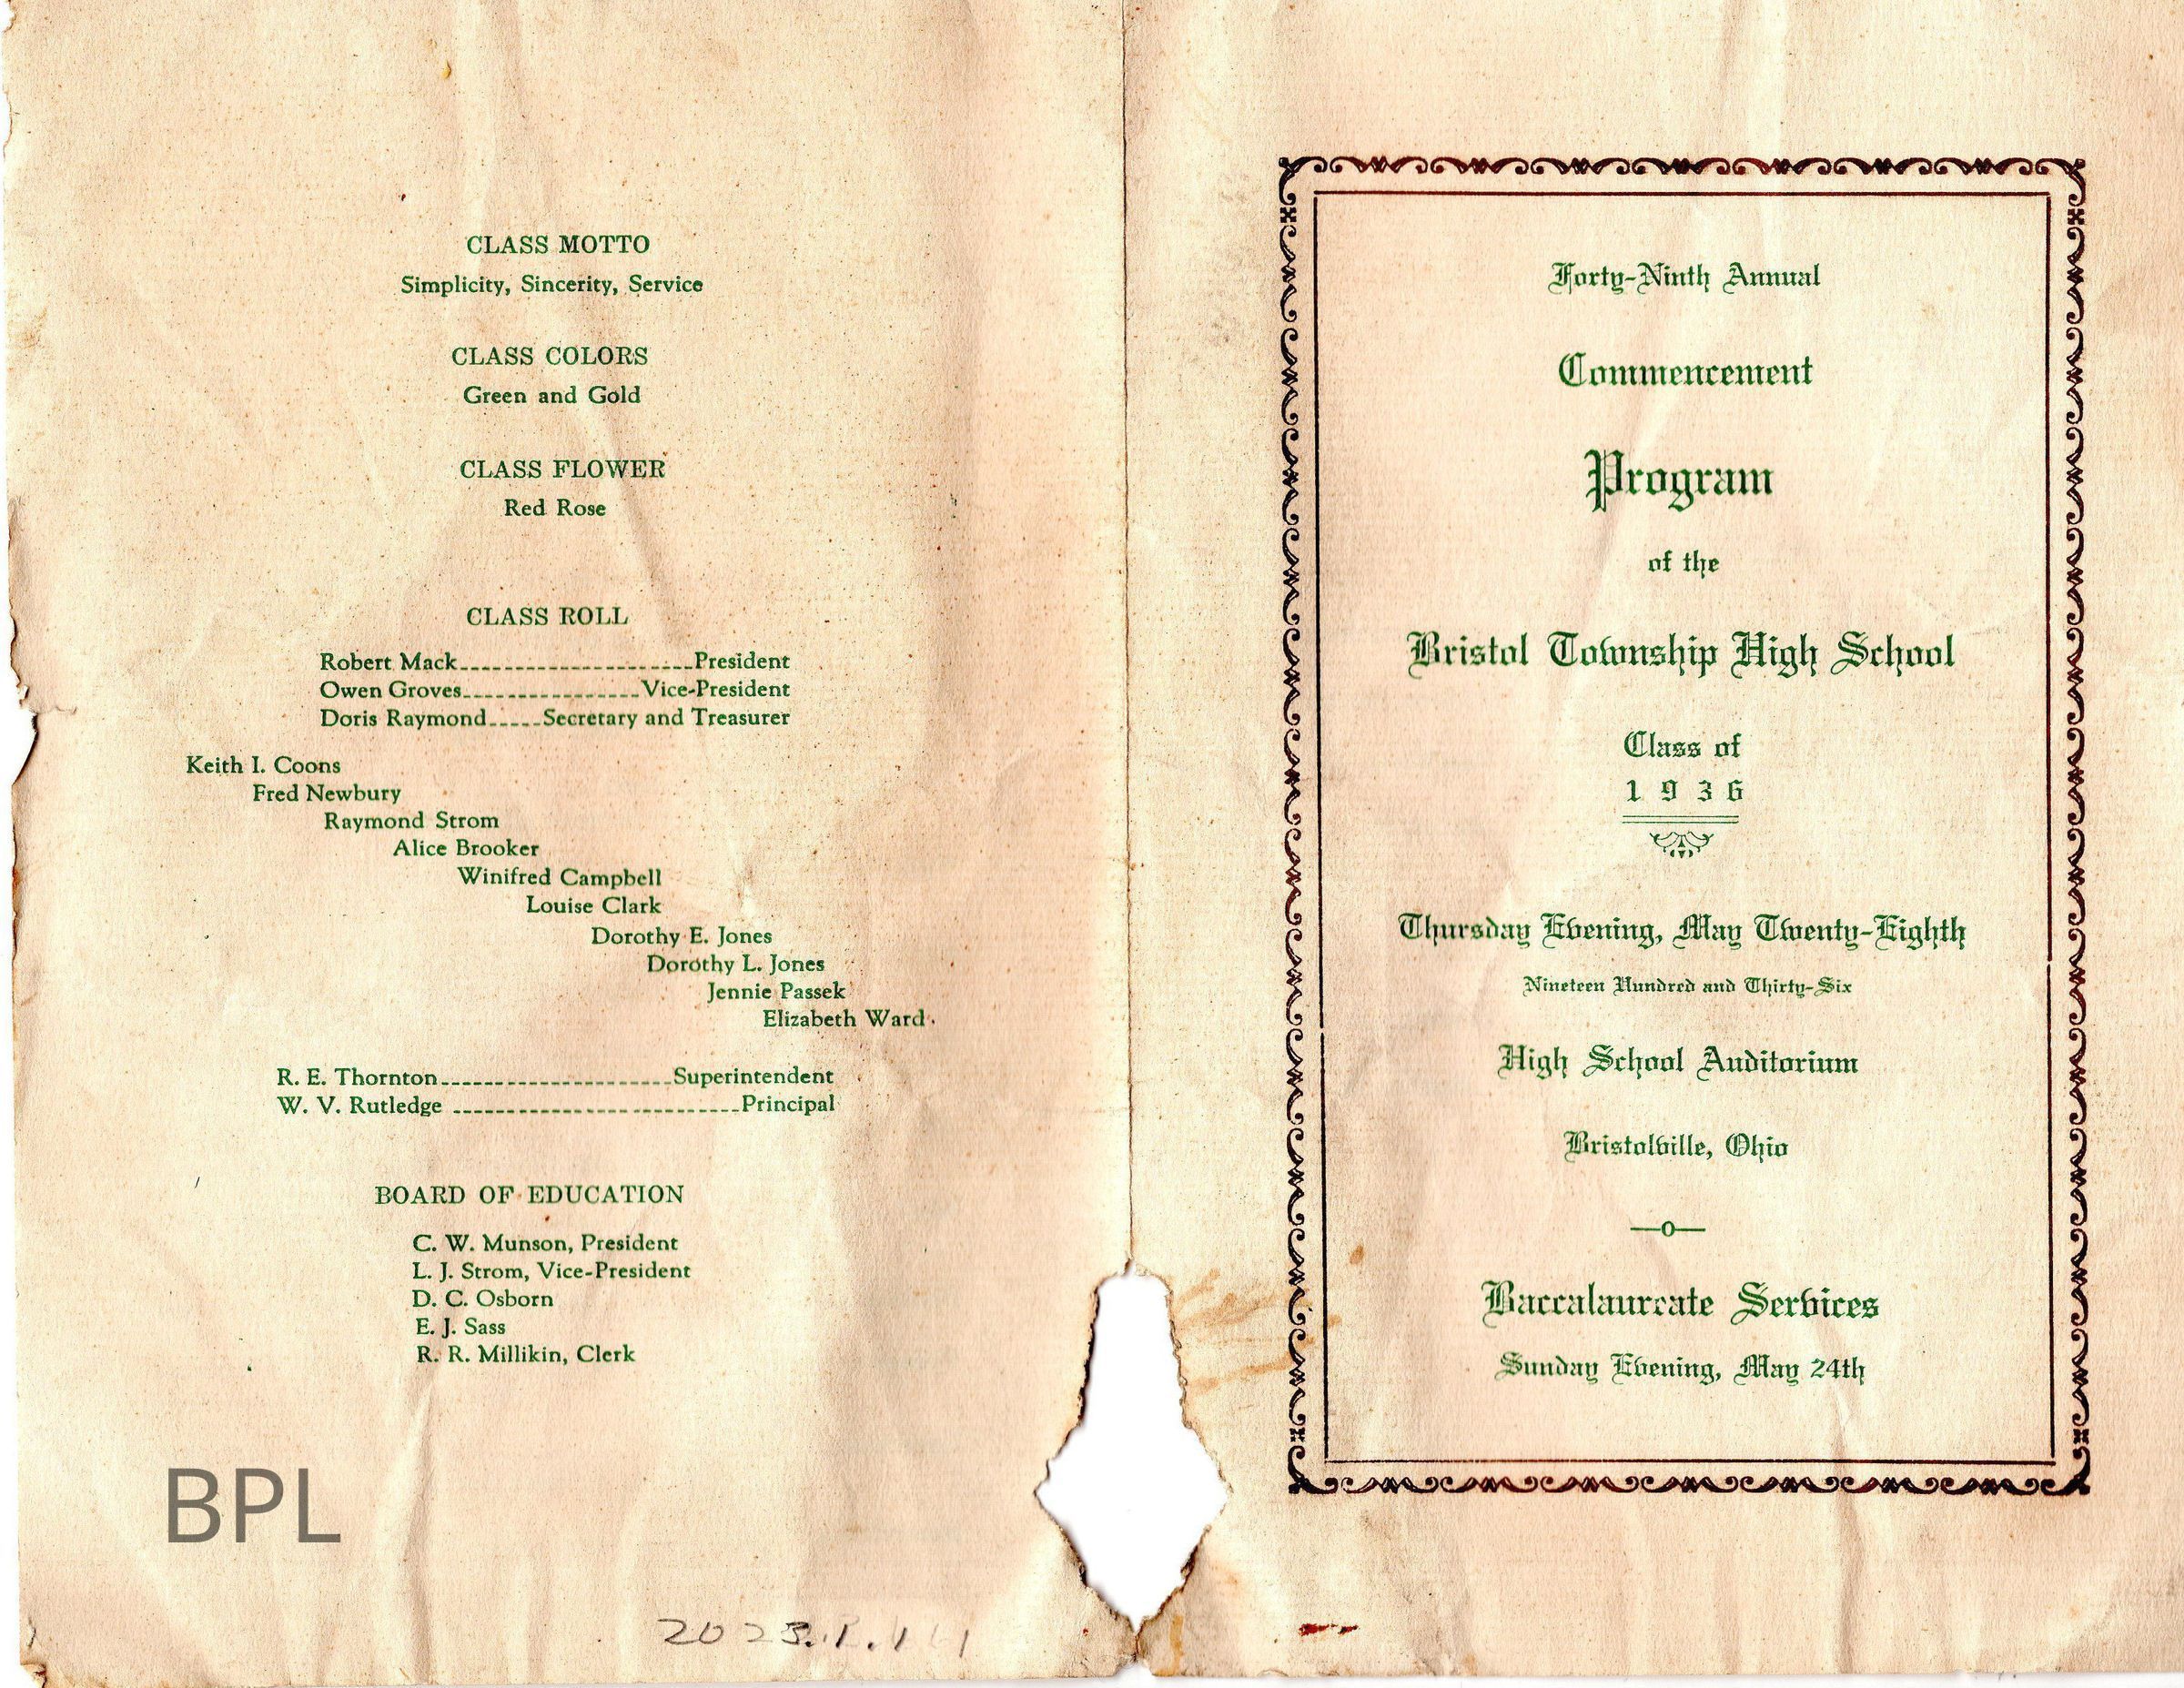 CLASS MOTTO
Simplicity, Sincerity, Service
CLASS COLORS
Green and Gold
CLASS FLOWER
Red Rose
CLASS ROLL
Robert Mack---------------------President
Owen Groves----------------Vice-President
Doris Raymond-----Secretary and Treasurer
Keith I. Coons
Fred Newbury
Raymond Strom
Alice Brooker
Winifred Campbell
Louise Clark
Dorothy E. Jones
Dorothy L. Jones
Jennie Passek
Elizabeth Ward
R. E. Thornton---------------------Superintendent
W. V. Rutledge --------------------------Principal
BOARD OF EDUCATION
C. W. Munson, President
L. J. Strom, Vice-President
D. C. Osborn
E. J. Sass
R. R. Millikin, Clerk
BPL
Forty-Ninth Annual
Commencement
Program
of the
Bristol Township High School
Class of
1936
Thursday Evening, May Twenty-Eighth
Nineteen Hundred and Thirty-Six
High School Auditorium
Bristolville, Ohio
—o—
Baccalaureate Services
Sunday Evening, May 24th